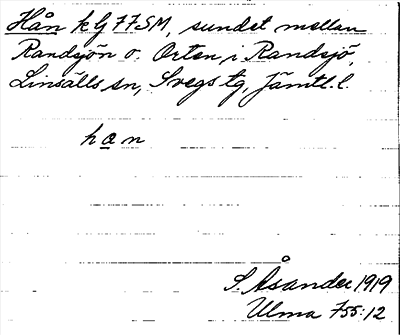 Hån k G 77 SM, sundet mellan
Randsjön o. Orten, i Randsjö,
Linsälls sn, Svegs tg, Jämtl. l.
han
S. Åsander 1919
Ulma 755:12